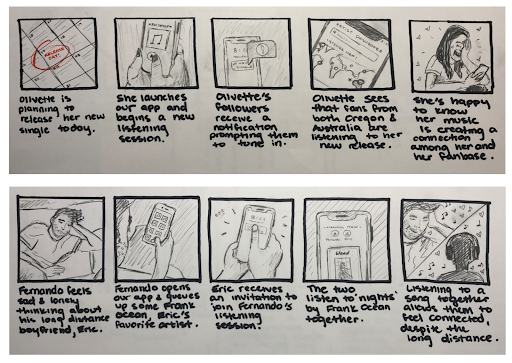 RELEASE
DAY!
Olivette is
planning to
release her new
single today.
She launches
our app and
begins a new
listening
session.
Olivette's
followers
receive a
notification
prompting them
to tune in.
Olivette sees
that fans from
both Oregon &
Australia are
listening to her
new release.
She's happy
to know
her music
is creating a
connection
among her and
her fanbase.
Fernando feels
sad & lonely
thinking about
his long distance
boyfriend, Eric.
Fernando opens
our app & queues
up some Frank
Ocean, Eric's
favorite artist.
Eric receives
an invitation to
join Fernando's
listening
session.
The two
listen to 'nights'
by Frank Ocean
together.
Listening to a
song together
allows them to
feel connected,
despite the
long distance.